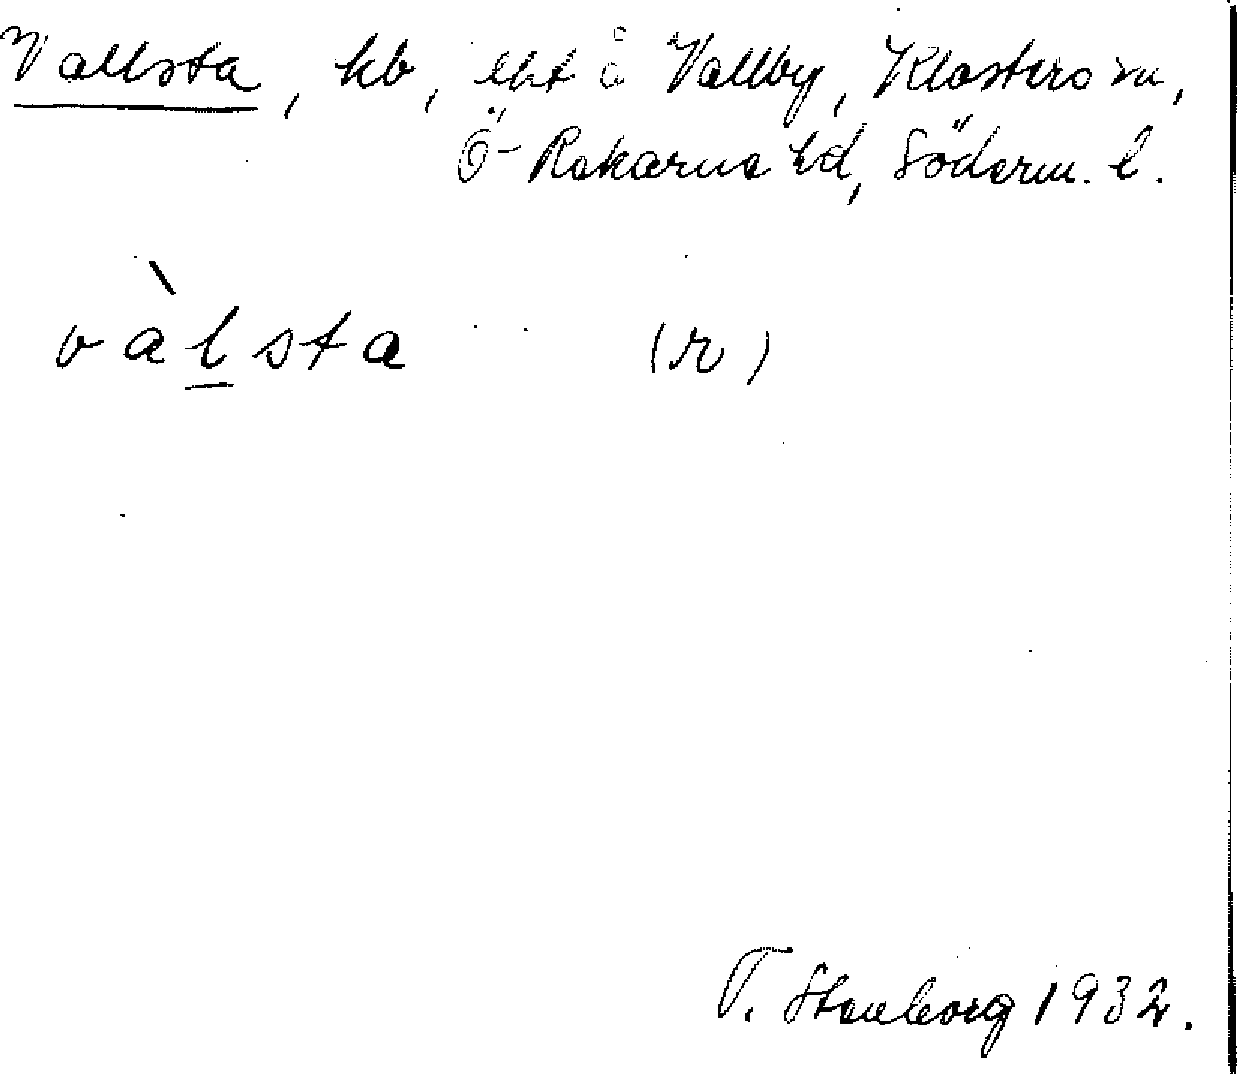 Vallsta, hb, lht å Vallby, Klosters sn,
Ö-Rekarne hd, Söderm. l.
vàlsta (r)
T. Stenborg 1932.